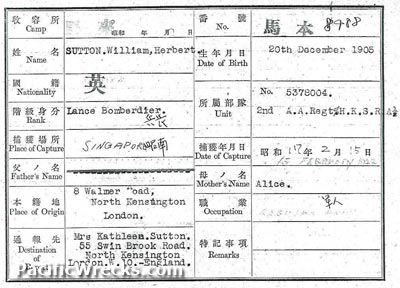 收容所 Camp 昭和 年 月 日
番號 No. 馬本
姓名 Name SUTTON.William,Herbert.
生年月日 Date of Birth 20th December 1905
國籍 Nationality 英
階級身分 Rank Lance Bomberdier.
所屬部隊 Unit No. 5378004.
2nd A.A.Regt H.K.S.R.A
捕獲場所 Place of Capture SINGAPORE
捕獲年月日 Date of Capture 昭和 17年 2月 15日
15 FEBRUARY 1942
父ノ名 Father's Name
母ノ名 Mother's Name Alice.
本籍地 Place of Origin 8 Walmer Road,
North Kensington
London.
職業 Occupation 軍人
通報先 Destination of Report Mrs Kathleen.Sutton.
55 Swin Brook Road.
North Kensington
London.W.10.-England.
特記事項 Remarks
PacificWrecks.com